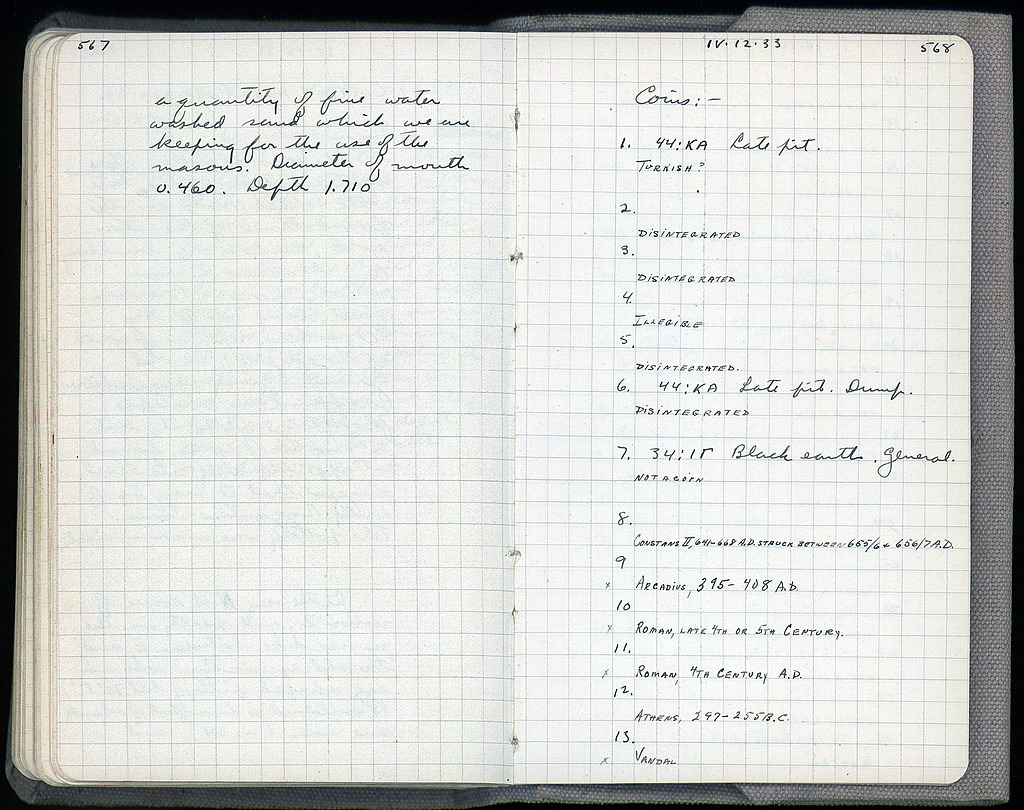 567
a quantity of fine water
washed sand which we are
keeping for the use of the
masons. Diameter of mouth
0.460. Depth 1.710
IV.12.33
568
Coins:-
1. 44:KA Late pit.
TURKISH?
2.
DISINTEGRATED
3.
DISINTEGRATED
4.
ILLEGIBLE
5.
DISINTEGRATED.
6. 44:KA Late pit. Dump.
DISINTEGRATED
7. 34:ΙΓ Black earth. General.
NOT A COIN
8.
CONSTANS II, 641-668 A.D. STRUCK BETWEEN 655/6 & 656/7 A.D.
9
x ARCADIUS, 395-408 A.D.
10
x ROMAN, LATE 4TH OR 5TH CENTURY.
11.
x ROMAN, 4TH CENTURY A.D.
12.
ATHENS, 297-255 B.C.
13.
x VANDAL